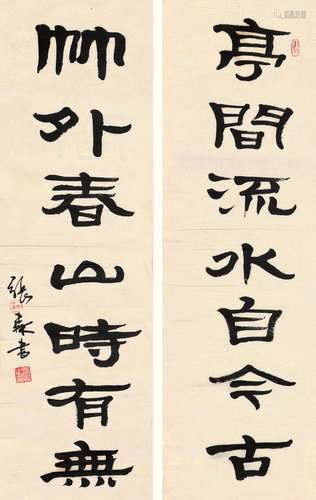 亭間流水自今古
竹外春山時有無
張森書